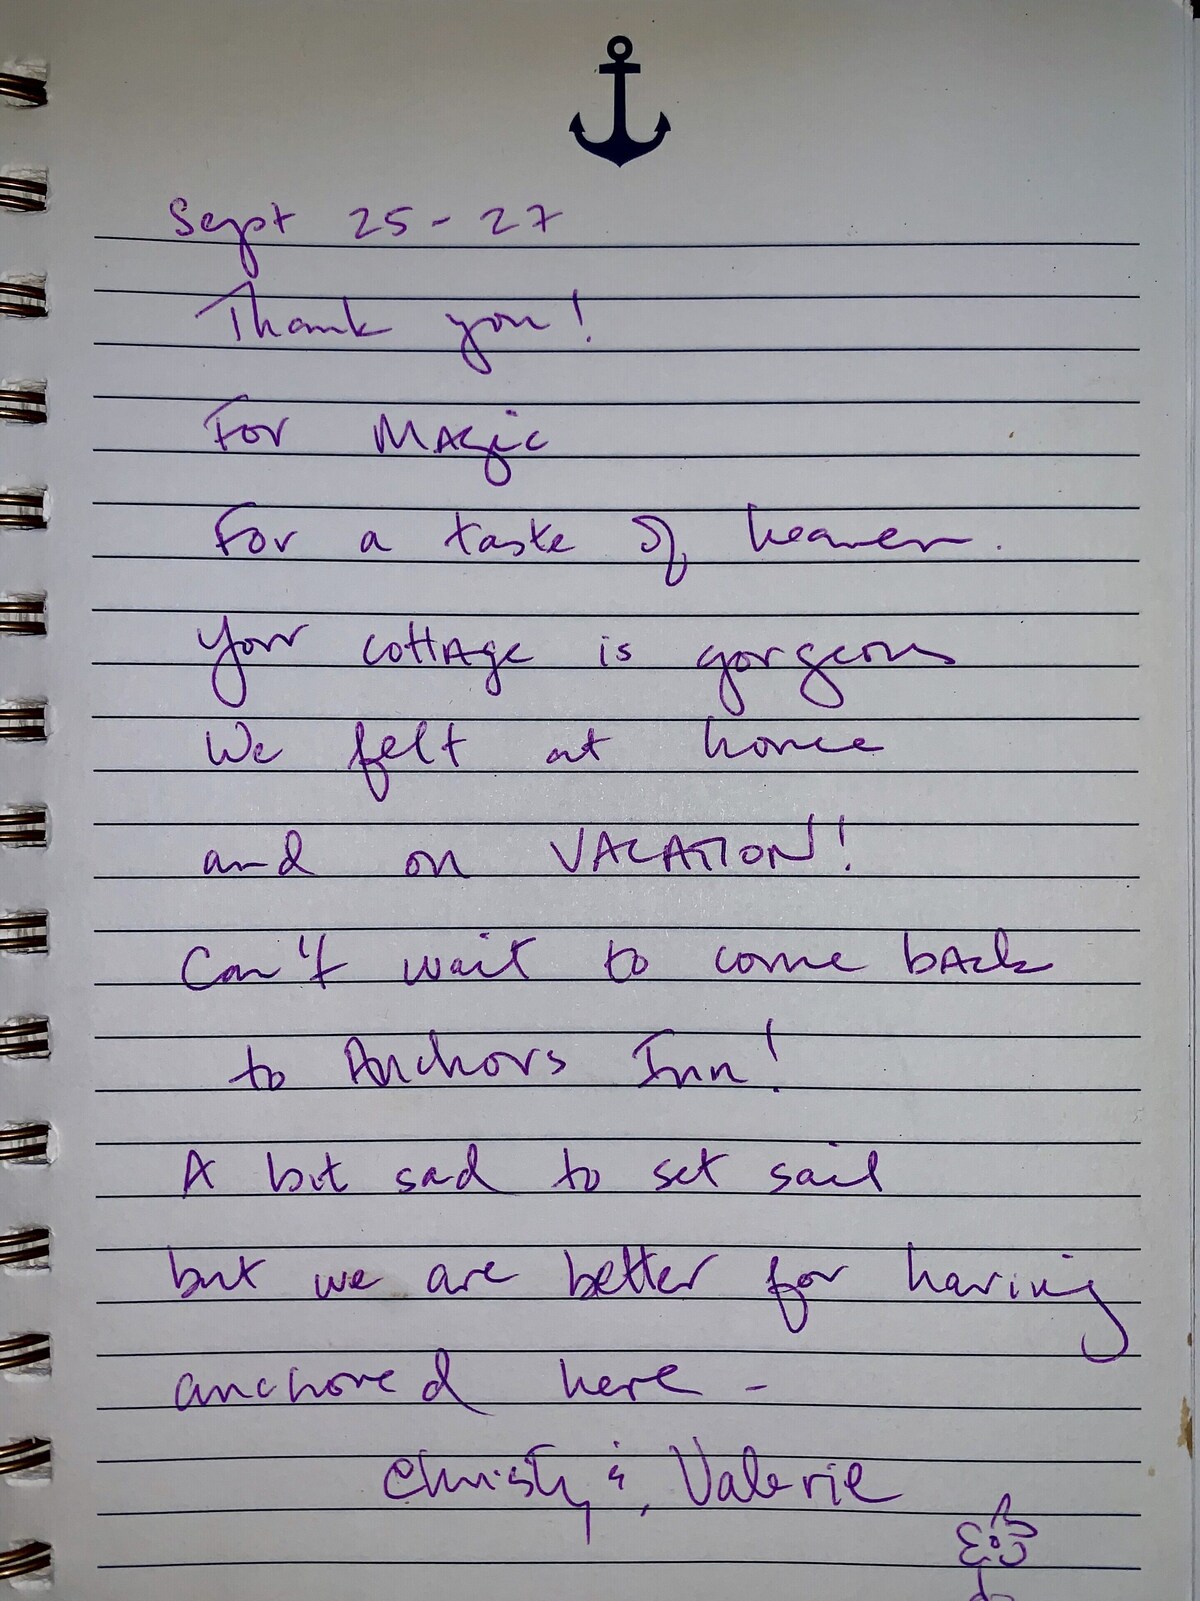 Sept 25-27
Thank you!
For MAgic
For a taste of heaven.
Your cottAge is gorgeous
We felt at home
and on VACATION!
Can't wait to come bAck
to Anchors Inn!
A bit sad to set sail
but we are better for having
anchored here -
Christy & Valerie